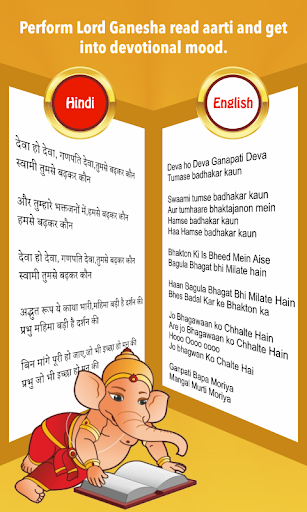 Perform Lord Ganesha read aarti and get
into devotional mood.
Hindi
English
देवा हो देवा, गणपति देवा,तुमसे बढ़कर कौन
स्वामी तुमसे बढ़कर कौन
और तुम्हारे भक्तजनों में,हमसे बढ़कर कौन
हमसे बढ़कर कौन
देवा हो देवा, गणपति देवा,तुमसे बढ़कर कौन
स्वामी तुमसे बढ़कर कौन
अद्भुत रूप ये काया भारी,महिमा बड़ी है दर्शन की
प्रभु महिमा बड़ी है दर्शन की
बिन मांगे पूरी हो जाए,जो भी इच्छा हो मन की
प्रभु जो भी इच्छा हो मन की
Deva ho Deva Ganapati Deva
Tumase badhakar kaun
Swaami tumse badhakar kaun
Aur tumhaare bhaktajanon mein
Hamse Badhakar kaun
Haa Hamse badhakar kaun
Bhakton Ki Is Bheed Mein Aise
Bagula Bhagat bhi Milate hain
Haan Bagula Bhagat bhi Milate Hain
Bhes Badal Kar ke Bhakton ka
Jo Bhagawaan ko Chhalte Hain
Are jo Bhagawaan ko Chhalte Hain
Hooo Oooo oooo
Jo bhagwan Ko Chhalte Hai
Ganpati Bapa Moriya
Mangal Murti Moriya